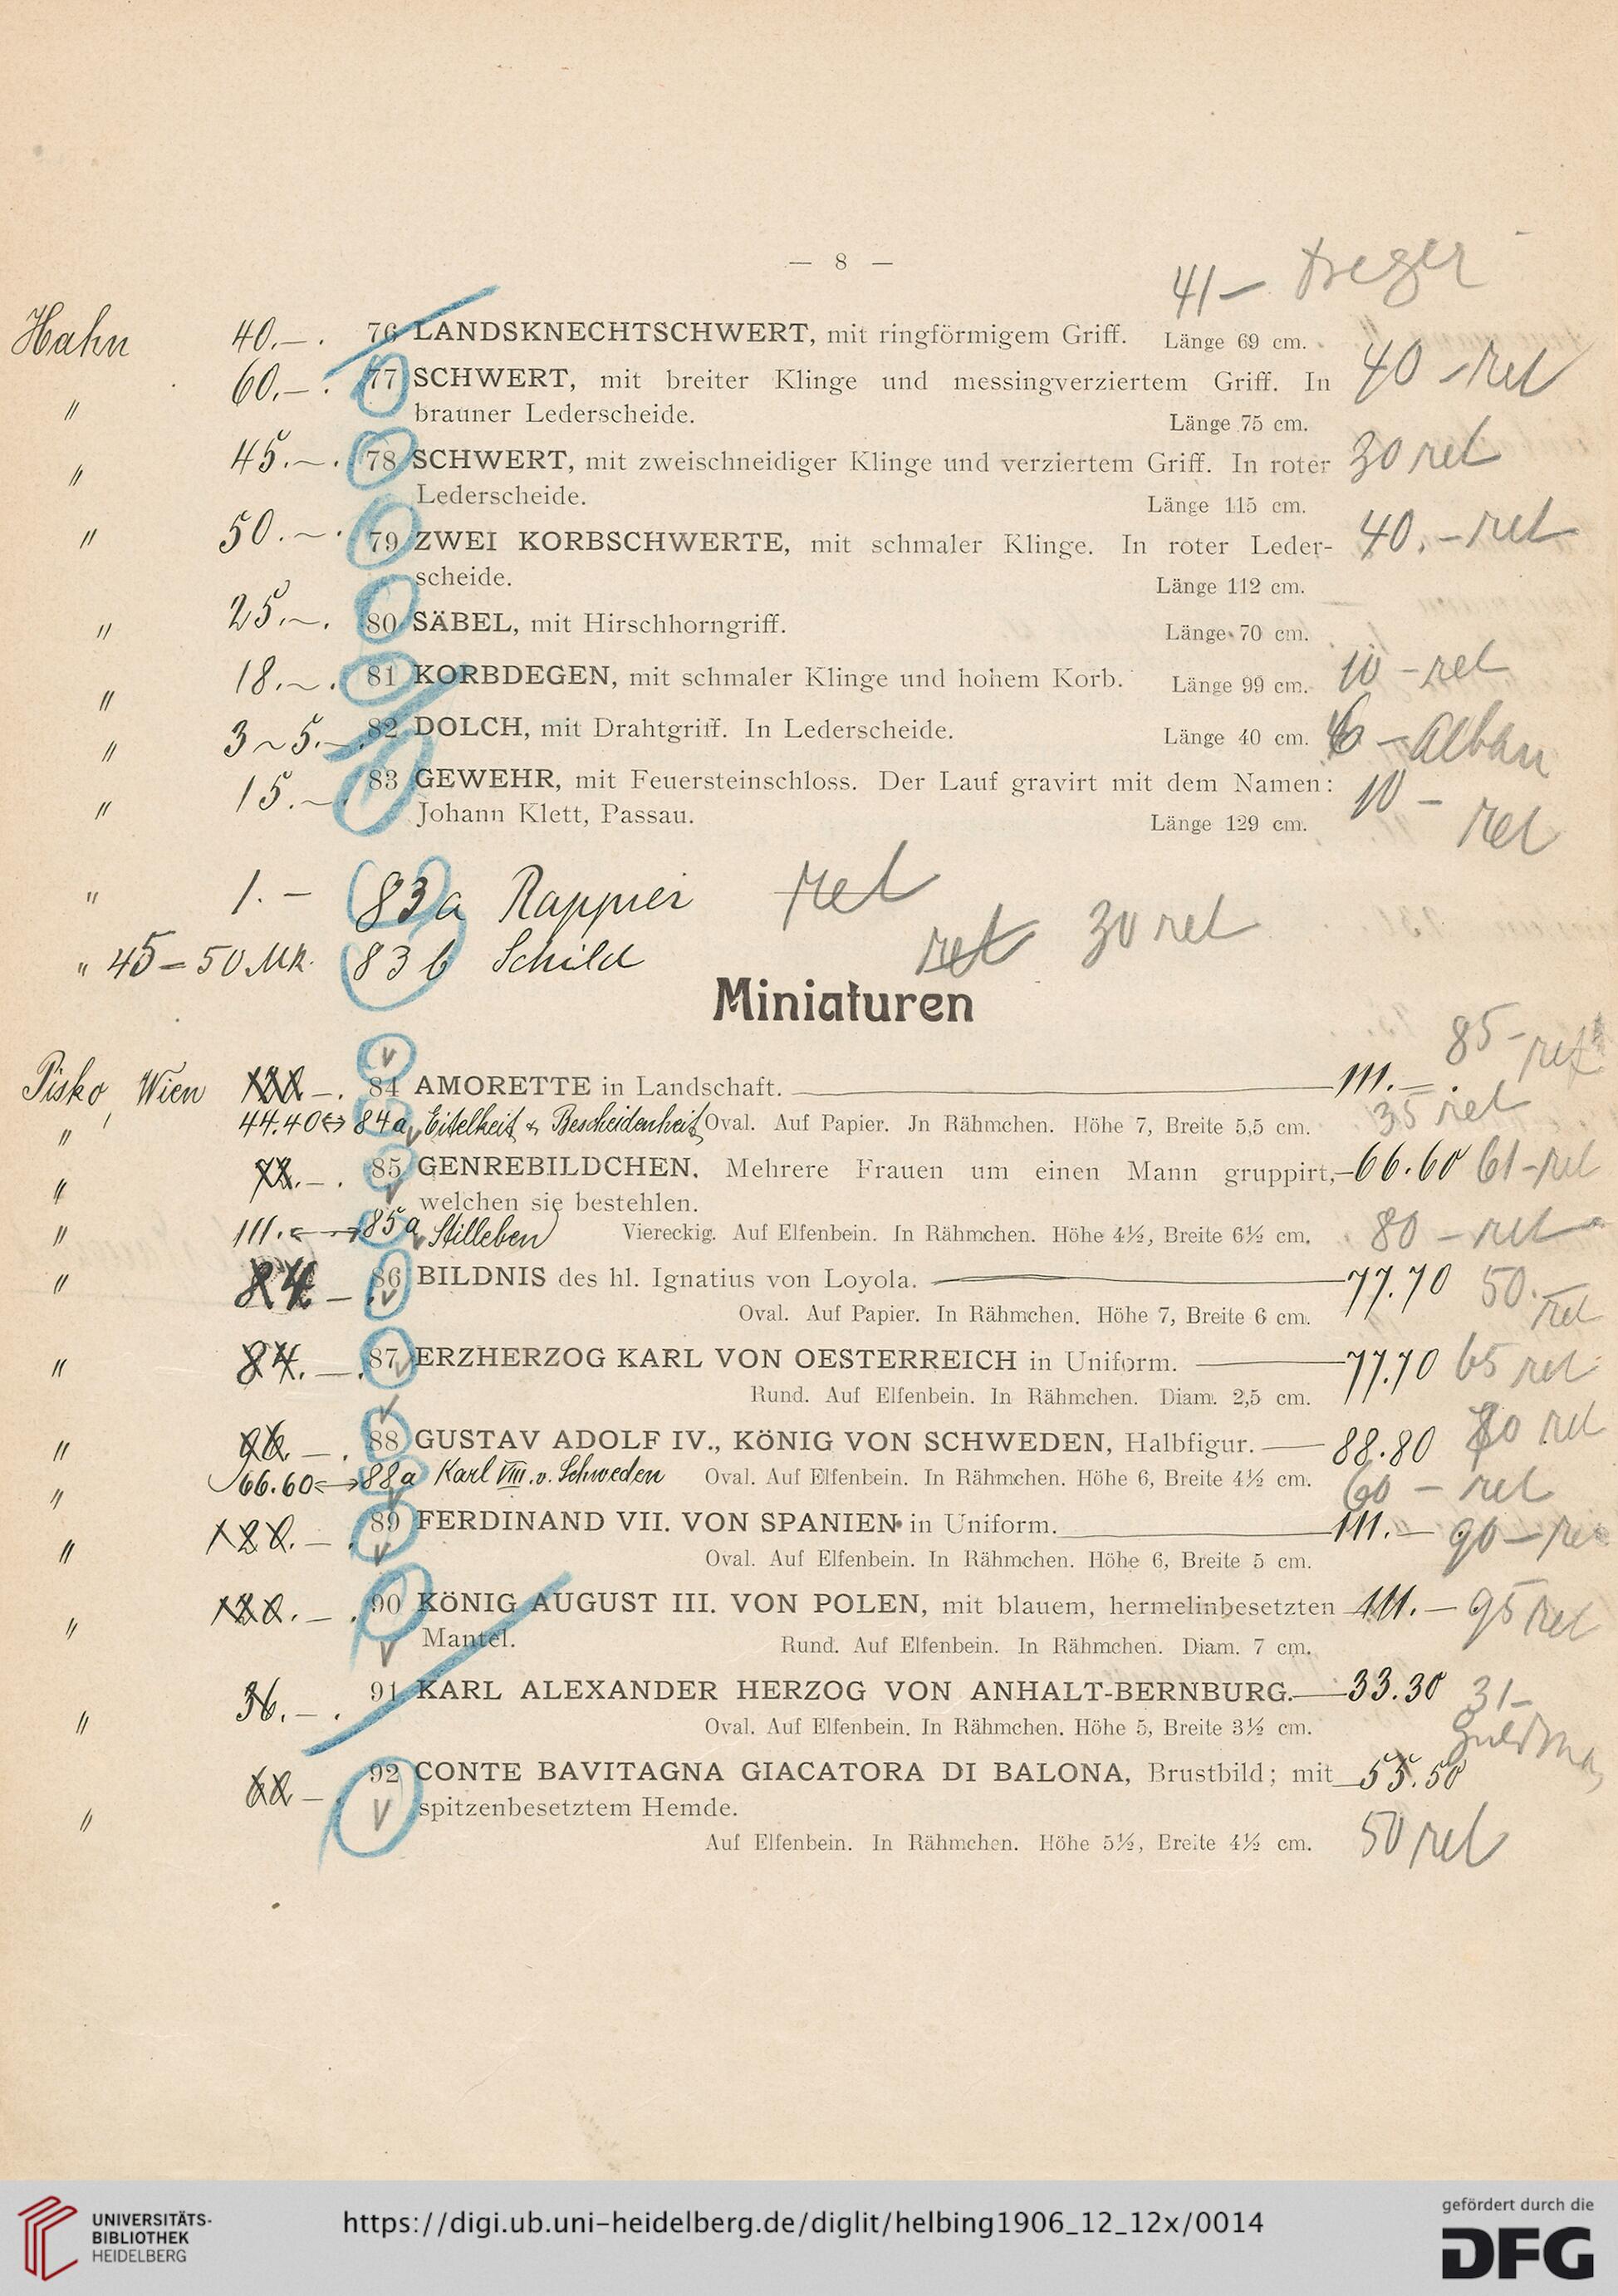 — 8 —
41 –
Hahn 40.– . 76 LANDSKNECHTSCHWERT, mit ringförmigem Griff. Länge 69 cm.
60.– . 77 SCHWERT, mit breiter Klinge und messingverziertem Griff. In 40 – ret
" brauner Lederscheide. Länge 75 cm.
45.– . 78 SCHWERT, mit zweischneidiger Klinge und verziertem Griff. In roter 30 ret
" Lederscheide. Länge 115 cm.
" 50.– . 79 ZWEI KORBSCHWERTE, mit schmaler Klinge. In roter Leder- 40.– ret
scheide. Länge 112 cm.
" 25.– . 80 SÄBEL, mit Hirschhorngriff. Länge 70 cm.
" 18.– . 81 KORBDEGEN, mit schmaler Klinge und hohem Korb. Länge 99 cm. 10 – ret
" 3 ~ 5.– . 82 DOLCH, mit Drahtgriff. In Lederscheide. Länge 40 cm. – Alban
" 15.– 83 GEWEHR, mit Feuersteinschloss. Der Lauf gravirt mit dem Namen: 10 – ret
Johann Klett, Passau. Länge 129 cm.
" 1.– 83a Rappier ret
" 45 = 50 Mk. 83 b Schild ret 30 ret
Miniaturen
85 – ret
Pisko, Wien – . 84 AMORETTE in Landschaft. 111.– .
" 44.40 ↔ 84a Eitelkeit & Bescheidenheit Oval. Auf Papier. Jn Rähmchen. Höhe 7, Breite 5,5 cm. 35 ret
" – . 85 GENREBILDCHEN. Mehrere Frauen um einen Mann gruppirt, 66.60 61 – ret
welchen sie bestehlen.
" 111. ↔ 85a Stilleben Viereckig. Auf Elfenbein. In Rähmchen. Höhe 4½, Breite 6½ cm. 80 – ret
" 84 – . 86 BILDNIS des hl. Ignatius von Loyola. 77.70 50.– ret
Oval. Auf Papier. In Rähmchen. Höhe 7, Breite 6 cm.
" 84. – . 87 ERZHERZOG KARL VON OESTERREICH in Uniform. 77.70 65 ret
Rund. Auf Elfenbein. In Rähmchen. Diam. 2,5 cm.
" 96 – . 88 GUSTAV ADOLF IV., KÖNIG VON SCHWEDEN, Halbfigur. 88.80 80 ret
" 66.60 ↔ 88a Karl VIII. v. Schweden Oval. Auf Elfenbein. In Rähmchen. Höhe 6, Breite 4½ cm. 60 – ret
" 120. – . 89 FERDINAND VII. VON SPANIEN in Uniform. 111.– 90 – ret
Oval. Auf Elfenbein. In Rähmchen. Höhe 6, Breite 5 cm.
" 120. – . 90 KÖNIG AUGUST III. VON POLEN, mit blauem, hermelinbesetzten 111.– 95 ret
Mantel. Rund. Auf Elfenbein. In Rähmchen. Diam. 7 cm.
" 36. – . 91 KARL ALEXANDER HERZOG VON ANHALT-BERNBURG. 33.30 31 –
Oval. Auf Elfenbein. In Rähmchen. Höhe 5, Breite 3½ cm.
" 60 – . 92 CONTE BAVITAGNA GIACATORA DI BALONA, Brustbild; mit 55.50
spitzenbesetztem Hemde.
Auf Elfenbein. In Rähmchen. Höhe 5½, Breite 4½ cm. 50 ret
UNIVERSITÄTS-
BIBLIOTHEK
HEIDELBERG
https://digi.ub.uni-heidelberg.de/diglit/helbing1906_12_12x/0014
gefördert durch die
DFG